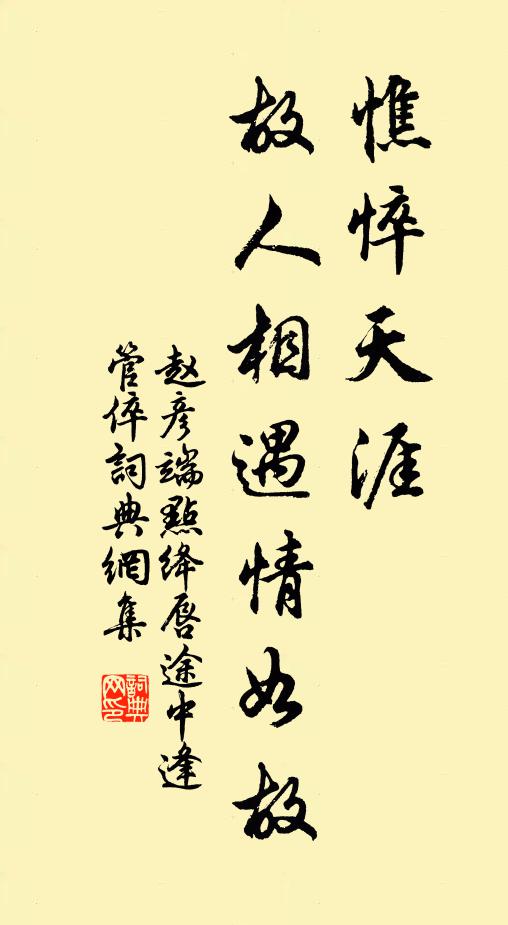 憔悴天涯
故人相遇情如故
赵彦端點绛唇途中逢
管倅詞典網集
詞典网印